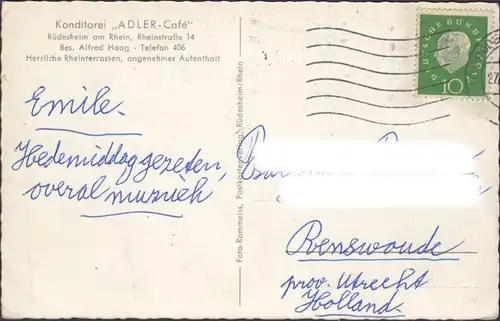 Konditorei „ADLER-Café"
Rüdesheim am Rhein, Rheinstraße 14
Bes. Alfred Haag - Telefon 406
Herrliche Rheinterrassen, angenehmer Aufenthalt
DEUTSCHE BUNDESPOST
10
Emile.
Hedemiddag gezeten,
overal muziek,
Foto-Rommeiss, Postkartenverlag, Rüdesheim/Rhein
Renswoude
prov. Utrecht
Holland.